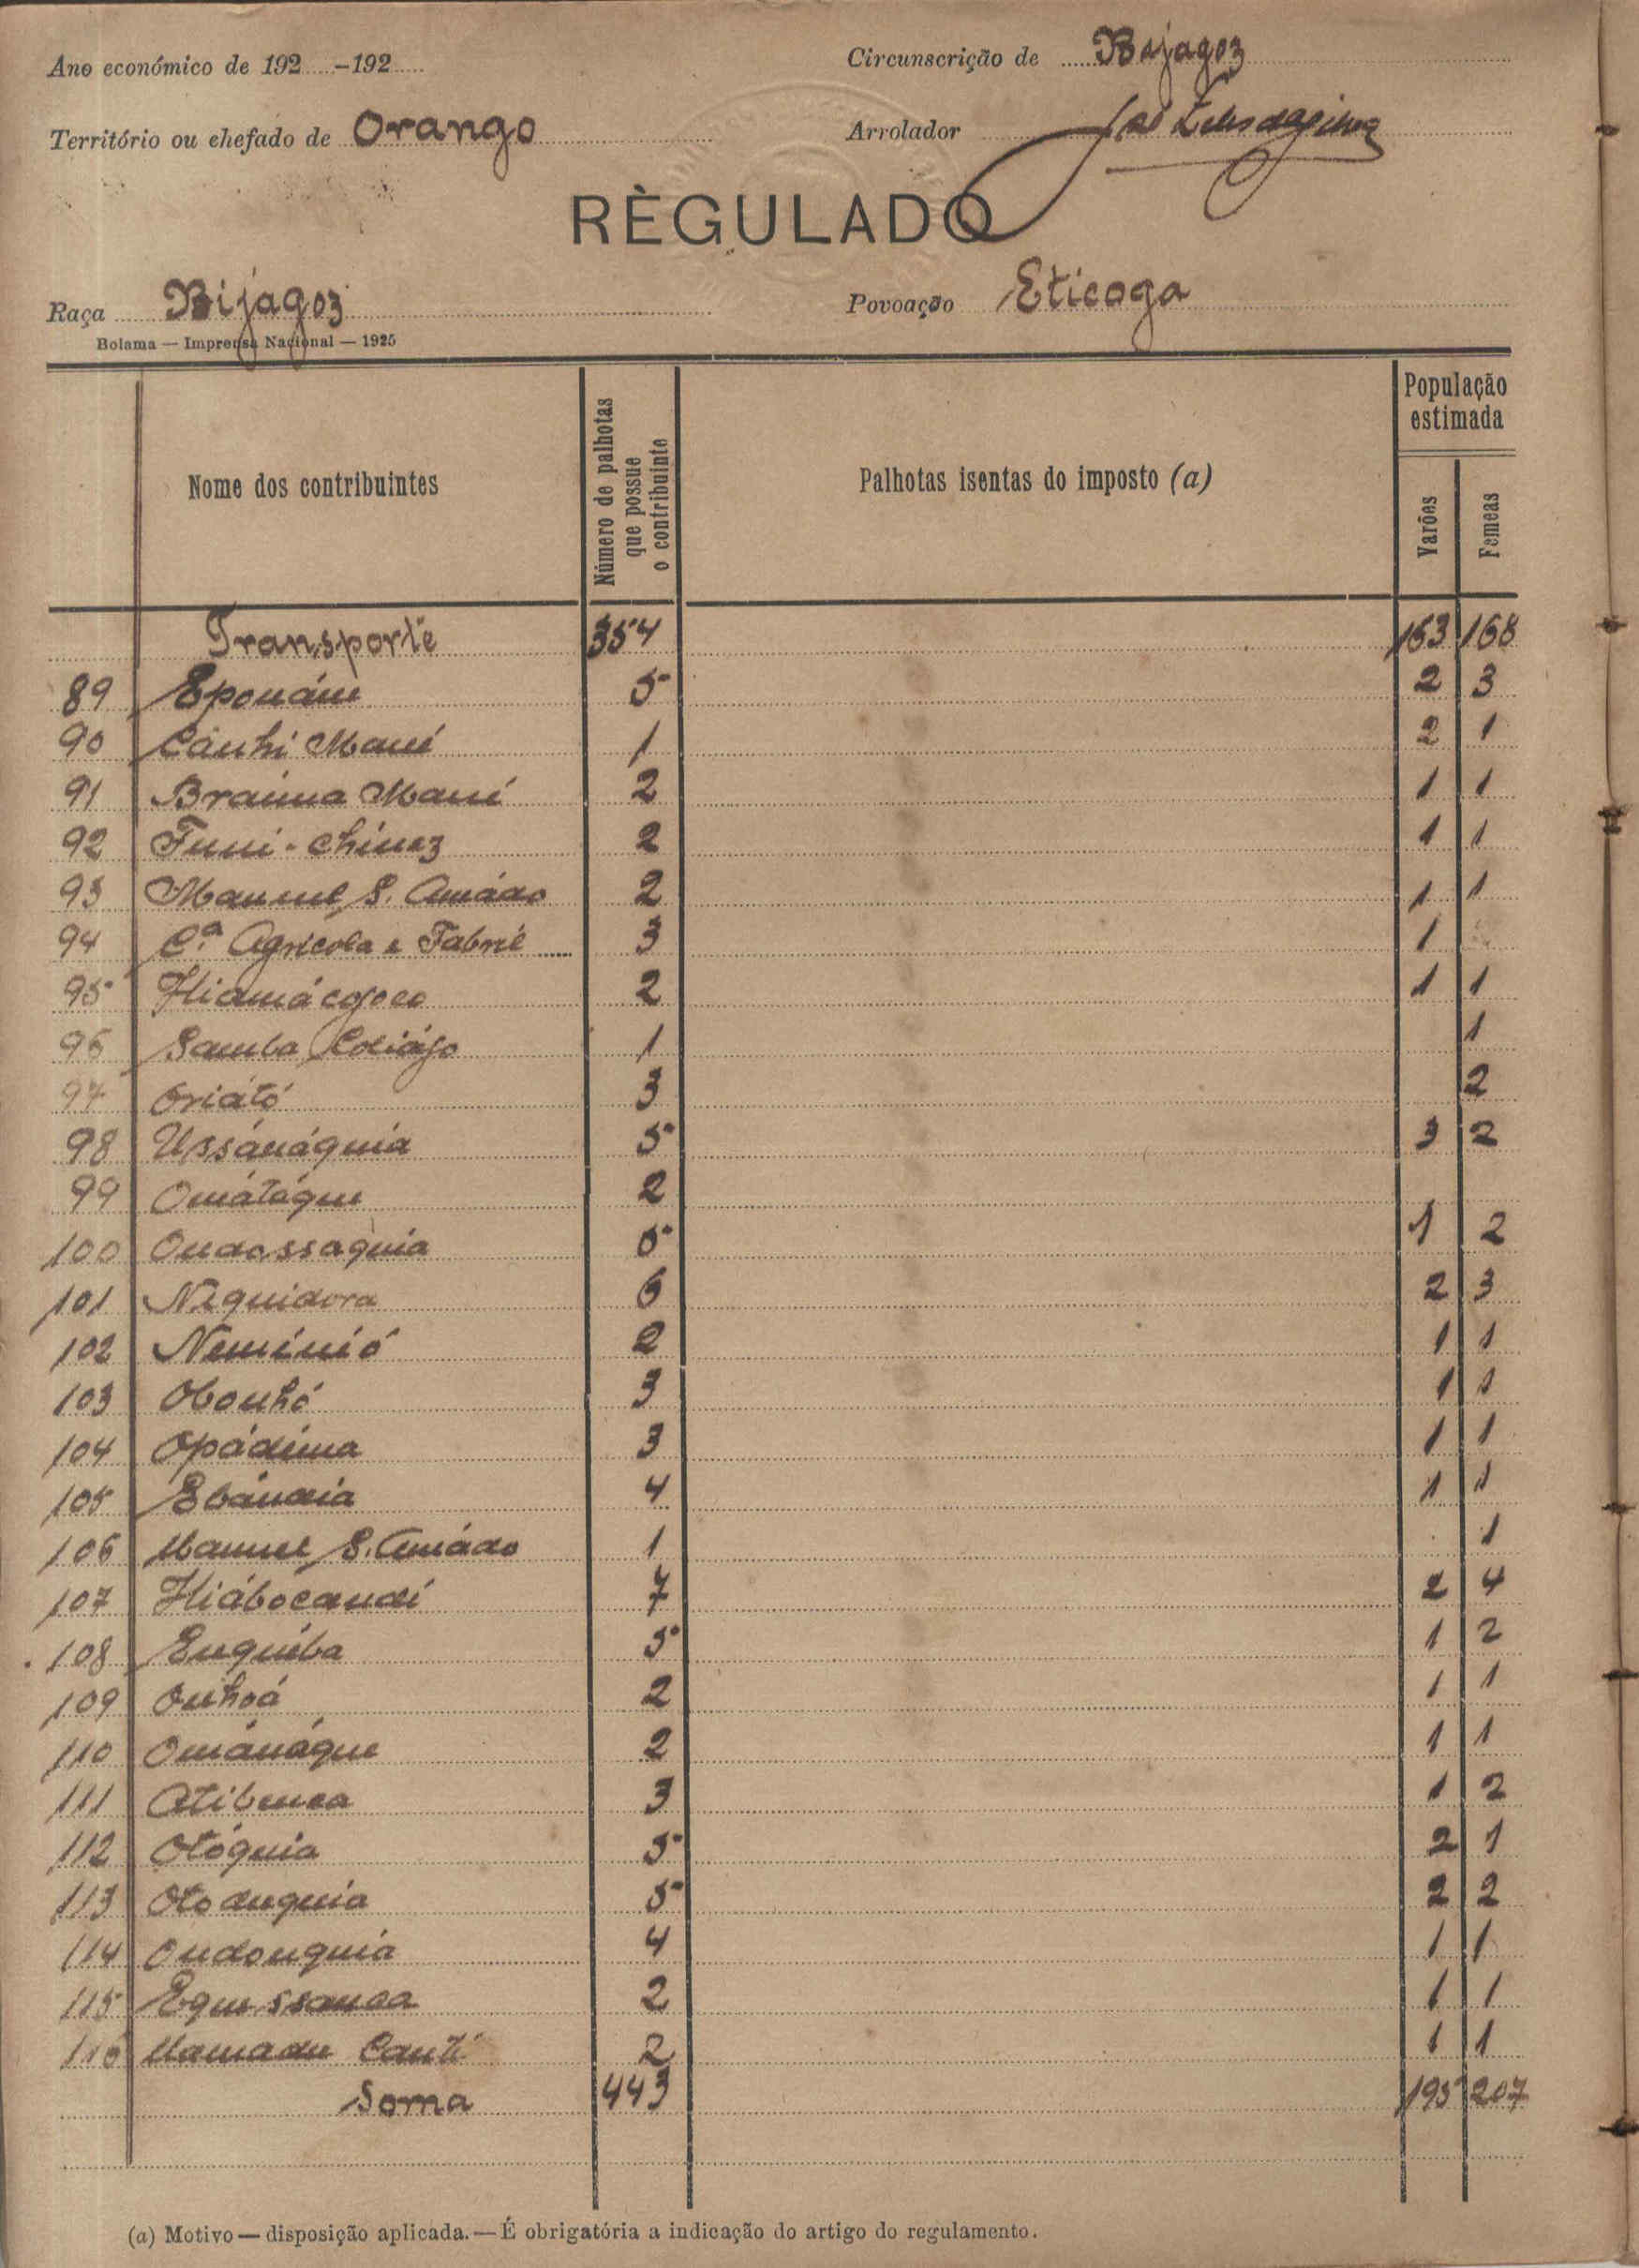 Ano económico de 192 -192
Circunscrição de Bijagoz
Território ou chefado de Orango
Arrolador José
RÈGULADO
Raça Bijagoz
Povoação Eticoga
Bolama — Imprensa Nacional — 1925
Nome dos contribuintes
Número de palhotas que possue o contribuinte
Palhotas isentas do imposto (a)
População estimada
Varões Femeas
Transporte 354 163 168
89 Eponáne 5 2 3
90 Canhi Mané 1 2 1
91 Braima Mané 2 1 1
92 Funi-chinez 2 1 1
93 Manuel S. Amádo 2 1 1
94 C.ª Agricola e Fabril 3 1
95 2 1 1
96 Samba 1 1
97 Oriátó 3 2
98 Ussánáquia 5 3 2
99 Omátáque 2
100 Oudassaquia 5 1 2
101 Nequidora 6 2 3
102 Neminió 2 1 1
103 Obonhó 3 1 1
104 Opádima 3 1 1
105 Ebándia 4 1 1
106 Manuel S. Amádo 1 1
107 Hiábocandi 7 2 4
108 Enquiba 5 1 2
109 Onhoá 2 1 1
110 Ománáque 2 1 1
111 3 1 2
112 Otóquia 5 2 1
113 Otoduquia 5 2 2
114 Oudonquia 4 1 1
115 Equessanca 2 1 1
116 Mamadu 2 1 1
Soma 443 195 207
(a) Motivo — disposição aplicada. — É obrigatória a indicação do artigo do regulamento.